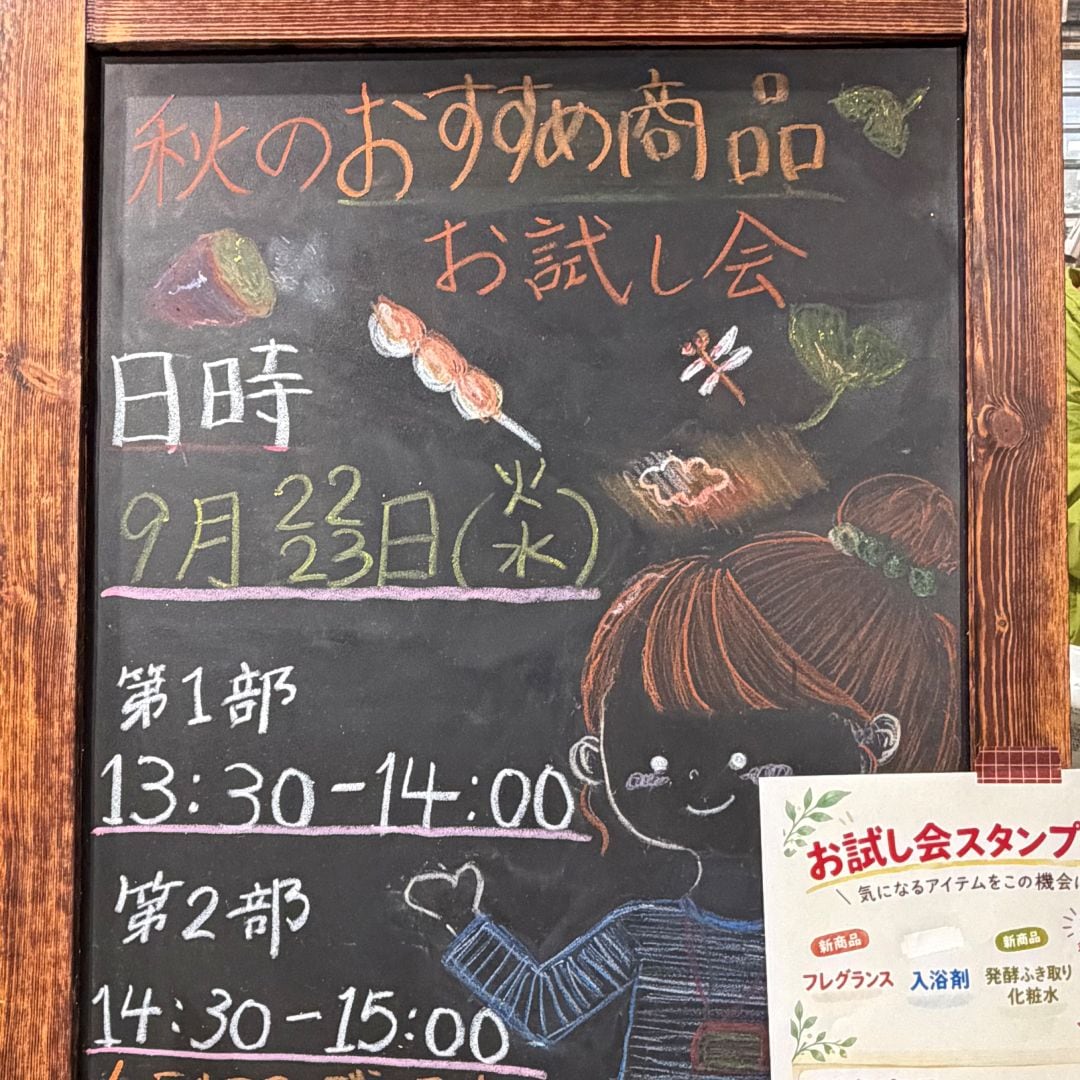 秋のおすすめ商品
お試し会
日時
9月22日(火
23 水)
第1部
13:30-14:00
第2部
14:30-15:00
お試し会スタンプ
\ 気になるアイテムをこの機会に
新商品
フレグランス
入浴剤
新商品
発酵ふき取り
化粧水